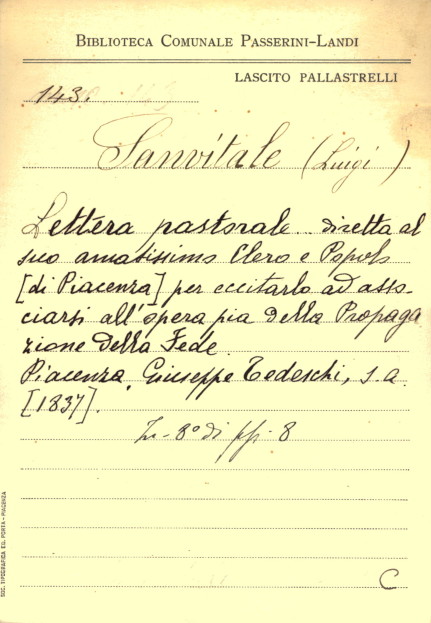 BIBLIOTECA COMUNALE PASSERINI-LANDI
LASCITO PALLASTRELLI
143.
Sanvitale (Luigi)
Lettera pastorale... diretta al
suo amatissimo Clero e Popolo
[di Piacenza] per eccitarlo ad asso-
ciarsi all'opera pia della Propaga
zione della Fede.
Piacenza, Giuseppe Tedeschi, s.a.
[1837].
In-8° di pp. 8
C
SOC. TIPOGRAFICA ED. PORTA - PIACENZA